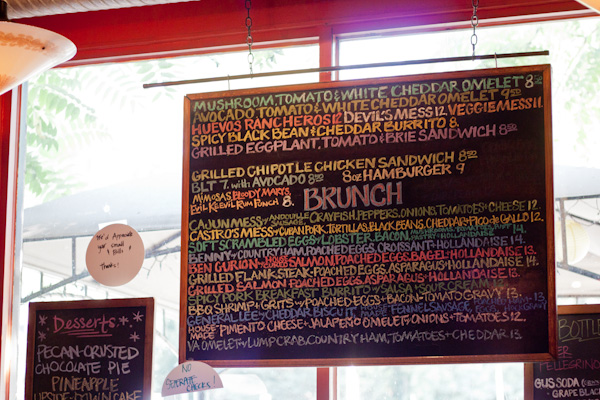 MUSHROOM, TOMATO & WHITE CHEDDAR OMELET 8 50
AVOCADO TOMATO & WHITE CHEDDAR OMELET 9 50
HUEVOS RANCHEROS 12 DEVIL'S MESS 12. VEGGIE MESS 11.
SPICY BLACK BEAN & CHEDDAR BURRITO 8.
GRILLED EGGPLANT, TOMATO & BRIE SANDWICH 8 50
GRILLED CHIPOTLE CHICKEN SANDWICH 8 50
BLT 7. WITH AVOCADO 8 50 8oz HAMBURGER 9
MIMOSAS, BLOODY MARYS,
EVIL KEEVIL RUM PUNCH 8. BRUNCH
CAJUN MESS W/ ANDOUILLE, CRAYFISH, PEPPERS, ONIONS, TOMATOES + CHEESE 12.
CASTRO'S MESS W/ CUBAN PORK, TORTILLAS, BLACK BEANS, CHEDDAR + PICO de GALLO 12.
SOFT SCRAMBLED EGGS W/ LOBSTER,
BENNY W/ COUNTRY HAM, POACHED EGGS, CROISSANT + HOLLANDAISE 14.
BEN GURION W/ SALMON, POACHED EGGS, BAGEL + HOLLANDAISE 13.
GRILLED FLANK STEAK - POACHED EGGS, ASPARAGUS + HOLLANDAISE 14.
GRILLED SALMON POACHED EGGS, ASPARAGUS + HOLLANDAISE 13.
SPICY PORK BREAKFAST BURRITO W/ SALSA + SOUR CREAM
BBQ SHRIMP & GRITS W/ POACHED EGGS + BACON - TOMATO GRAVY 13.
GENERAL LEE W/ CHEDDAR BISCUIT, FENNEL SAUSAGE 13.
HOUSE MADE PIMENTO CHEESE + JALAPEÑO OMELET W/ ONIONS + TOMATOES 12.
VA OMELET W/ LUMP CRAB, COUNTRY HAM, TOMATOES + CHEDDAR 13.
We'd Appreciate
your small
Bills
Thanks!
Desserts
PECAN-CRUSTED
CHOCOLATE PIE
PINEAPPLE
UPSIDE-DOWN CAKE
NO
SEPARATE
CHECKS!
BOTTLE
PELLEGRINO
GUS SODA
- GRAPE BLACK